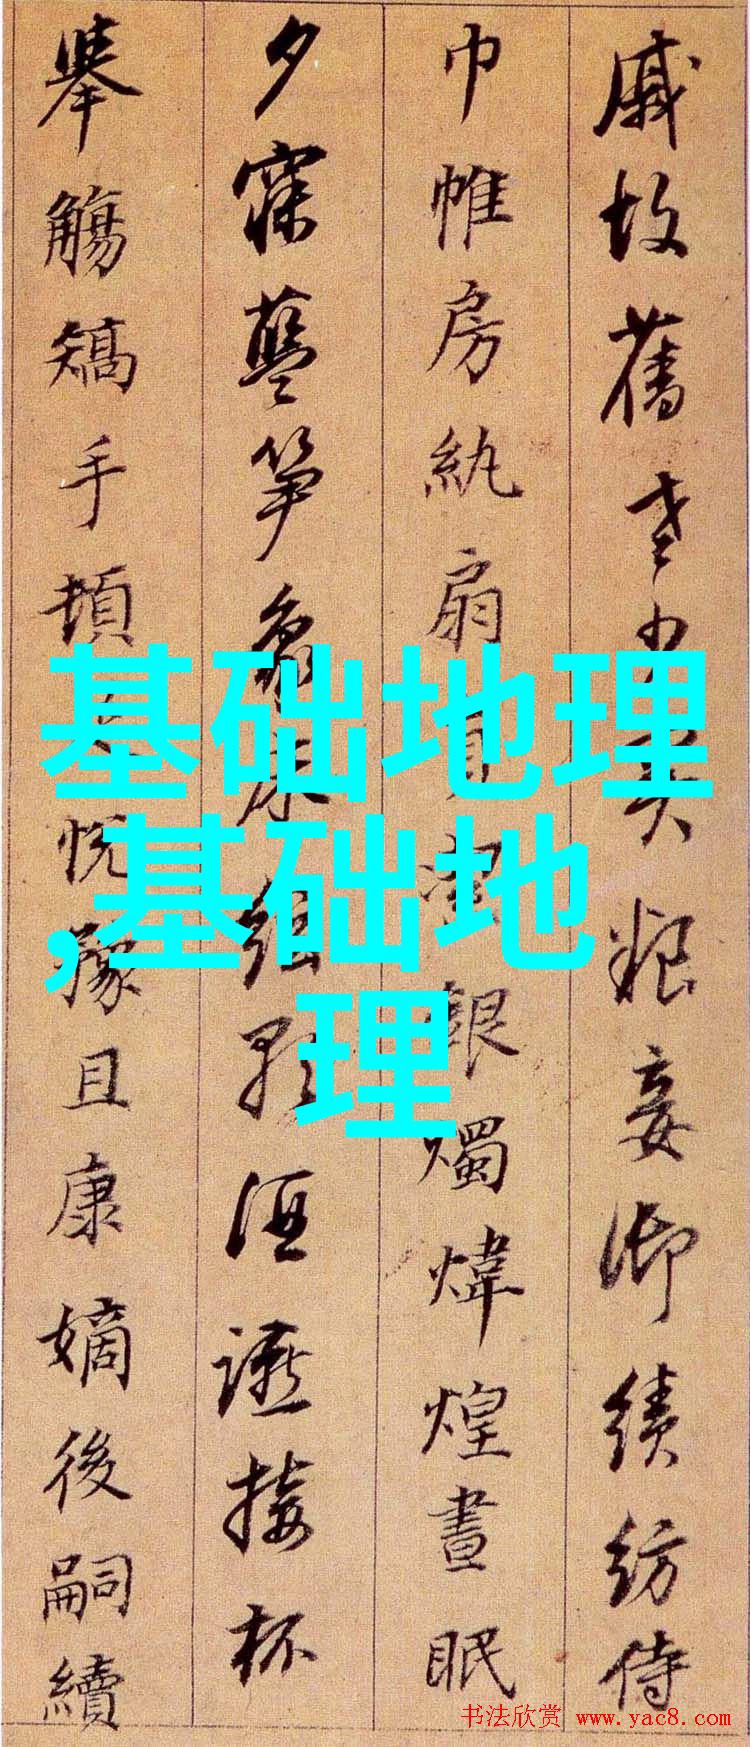 戚故舊老少異粮妾御績紡侍
巾帷房紈扇員潔銀燭煒煌晝眠
夕寐藍笋象床絃歌酒讌接杯
舉觴矯手頓悅豫且康嫡後嗣續
基础地理
,基础地
理
书法欣赏 www.yac8.com